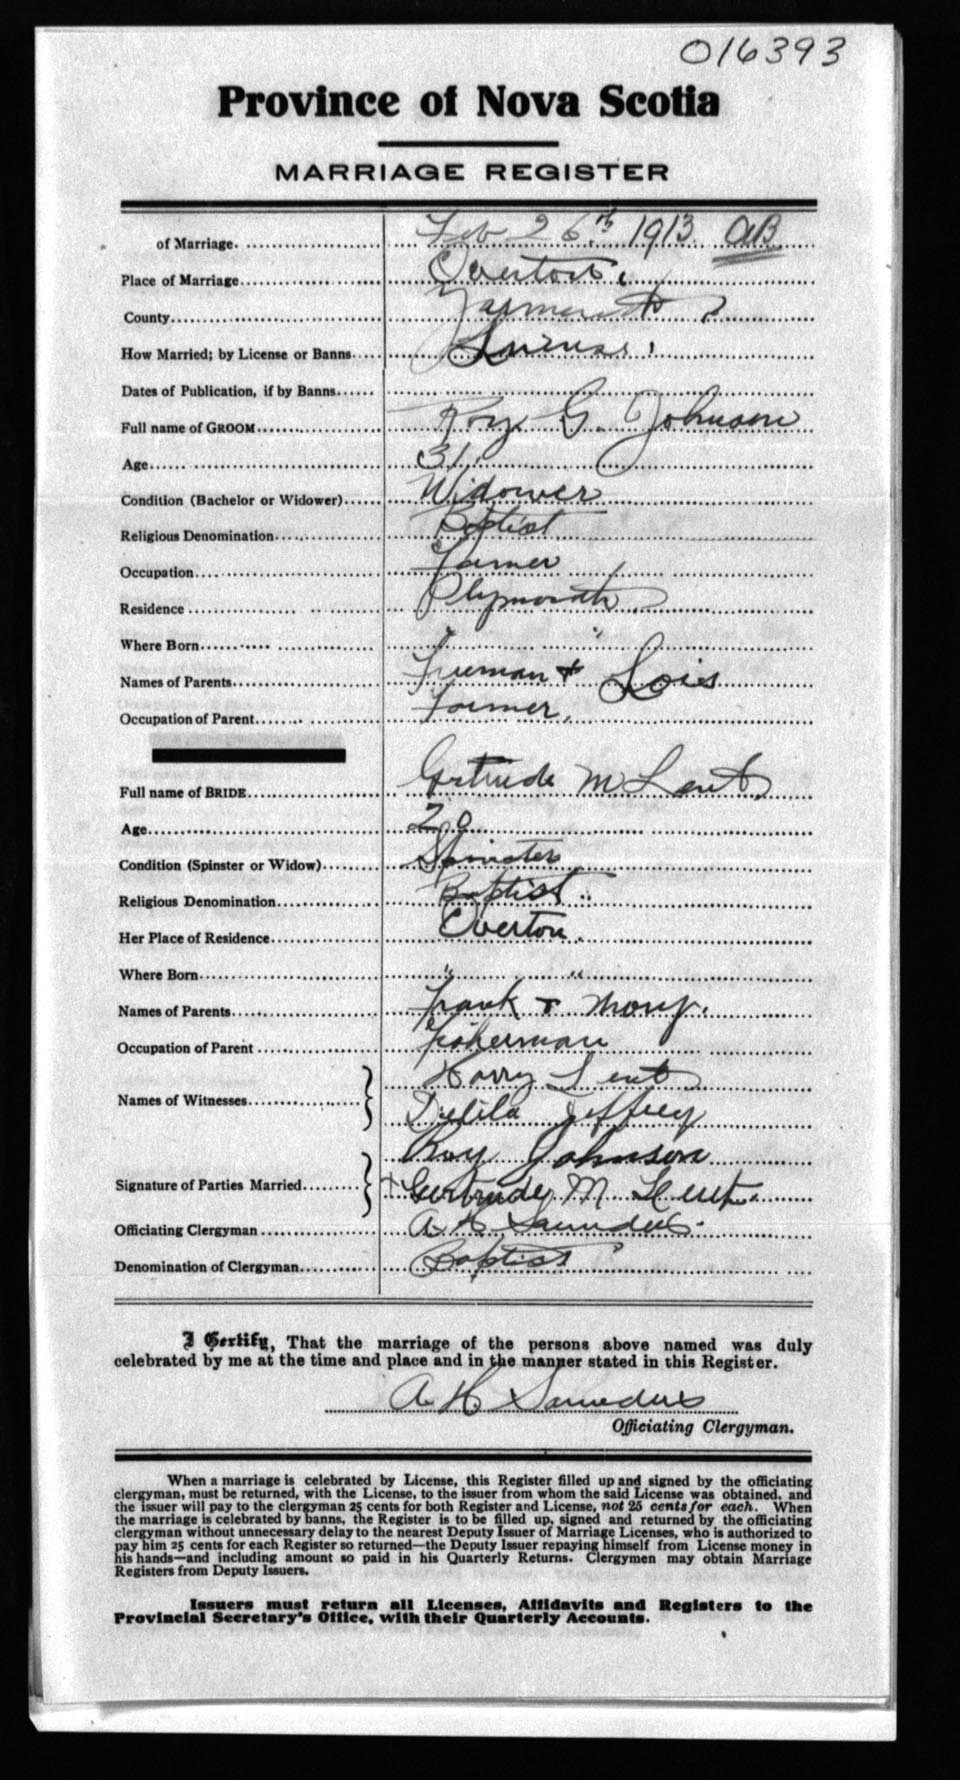 016393
Province of Nova Scotia
MARRIAGE REGISTER
of Marriage. Feb 26th 1913. AB
Place of Marriage Overton.
County Yarmouth
How Married; by License or Banns License.
Dates of Publication, if by Banns
Full name of GROOM Roy G. Johnson
Age 31.
Condition (Bachelor or Widower) Widower
Religious Denomination Baptist
Occupation Farmer
Residence Plymouth
Where Born " "
Names of Parents Freeman + Lois
Occupation of Parent Farmer.
Full name of BRIDE Gertrude M Lent
Age 20
Condition (Spinster or Widow) Spinster
Religious Denomination Baptist
Her Place of Residence Overton.
Where Born " "
Names of Parents Frank + Mary.
Occupation of Parent Fisherman
Harry Lent
Names of Witnesses
Delila Jeffrey
Roy Johnson
Signature of Parties Married + Gertrude M Lent.
Officiating Clergyman A H Saunders.
Denomination of Clergyman Baptist
I Certify, That the marriage of the persons above named was duly
celebrated by me at the time and place and in the manner stated in this Register.
A H Saunders
Officiating Clergyman.
When a marriage is celebrated by License, this Register filled up and signed by the officiating
clergyman, must be returned, with the License, to the issuer from whom the said License was obtained, and
the issuer will pay to the clergyman 25 cents for both Register and License, not 25 cents for each. When
the marriage is celebrated by banns, the Register is to be filled up, signed and returned by the officiating
clergyman without unnecessary delay to the nearest Deputy Issuer of Marriage Licenses, who is authorized to
pay him 25 cents for each Register so returned—the Deputy Issuer repaying himself from License money in
his hands—and including amount so paid in his Quarterly Returns. Clergymen may obtain Marriage
Registers from Deputy Issuers.
Issuers must return all Licenses, Affidavits and Registers to the
Provincial Secretary's Office, with their Quarterly Accounts.